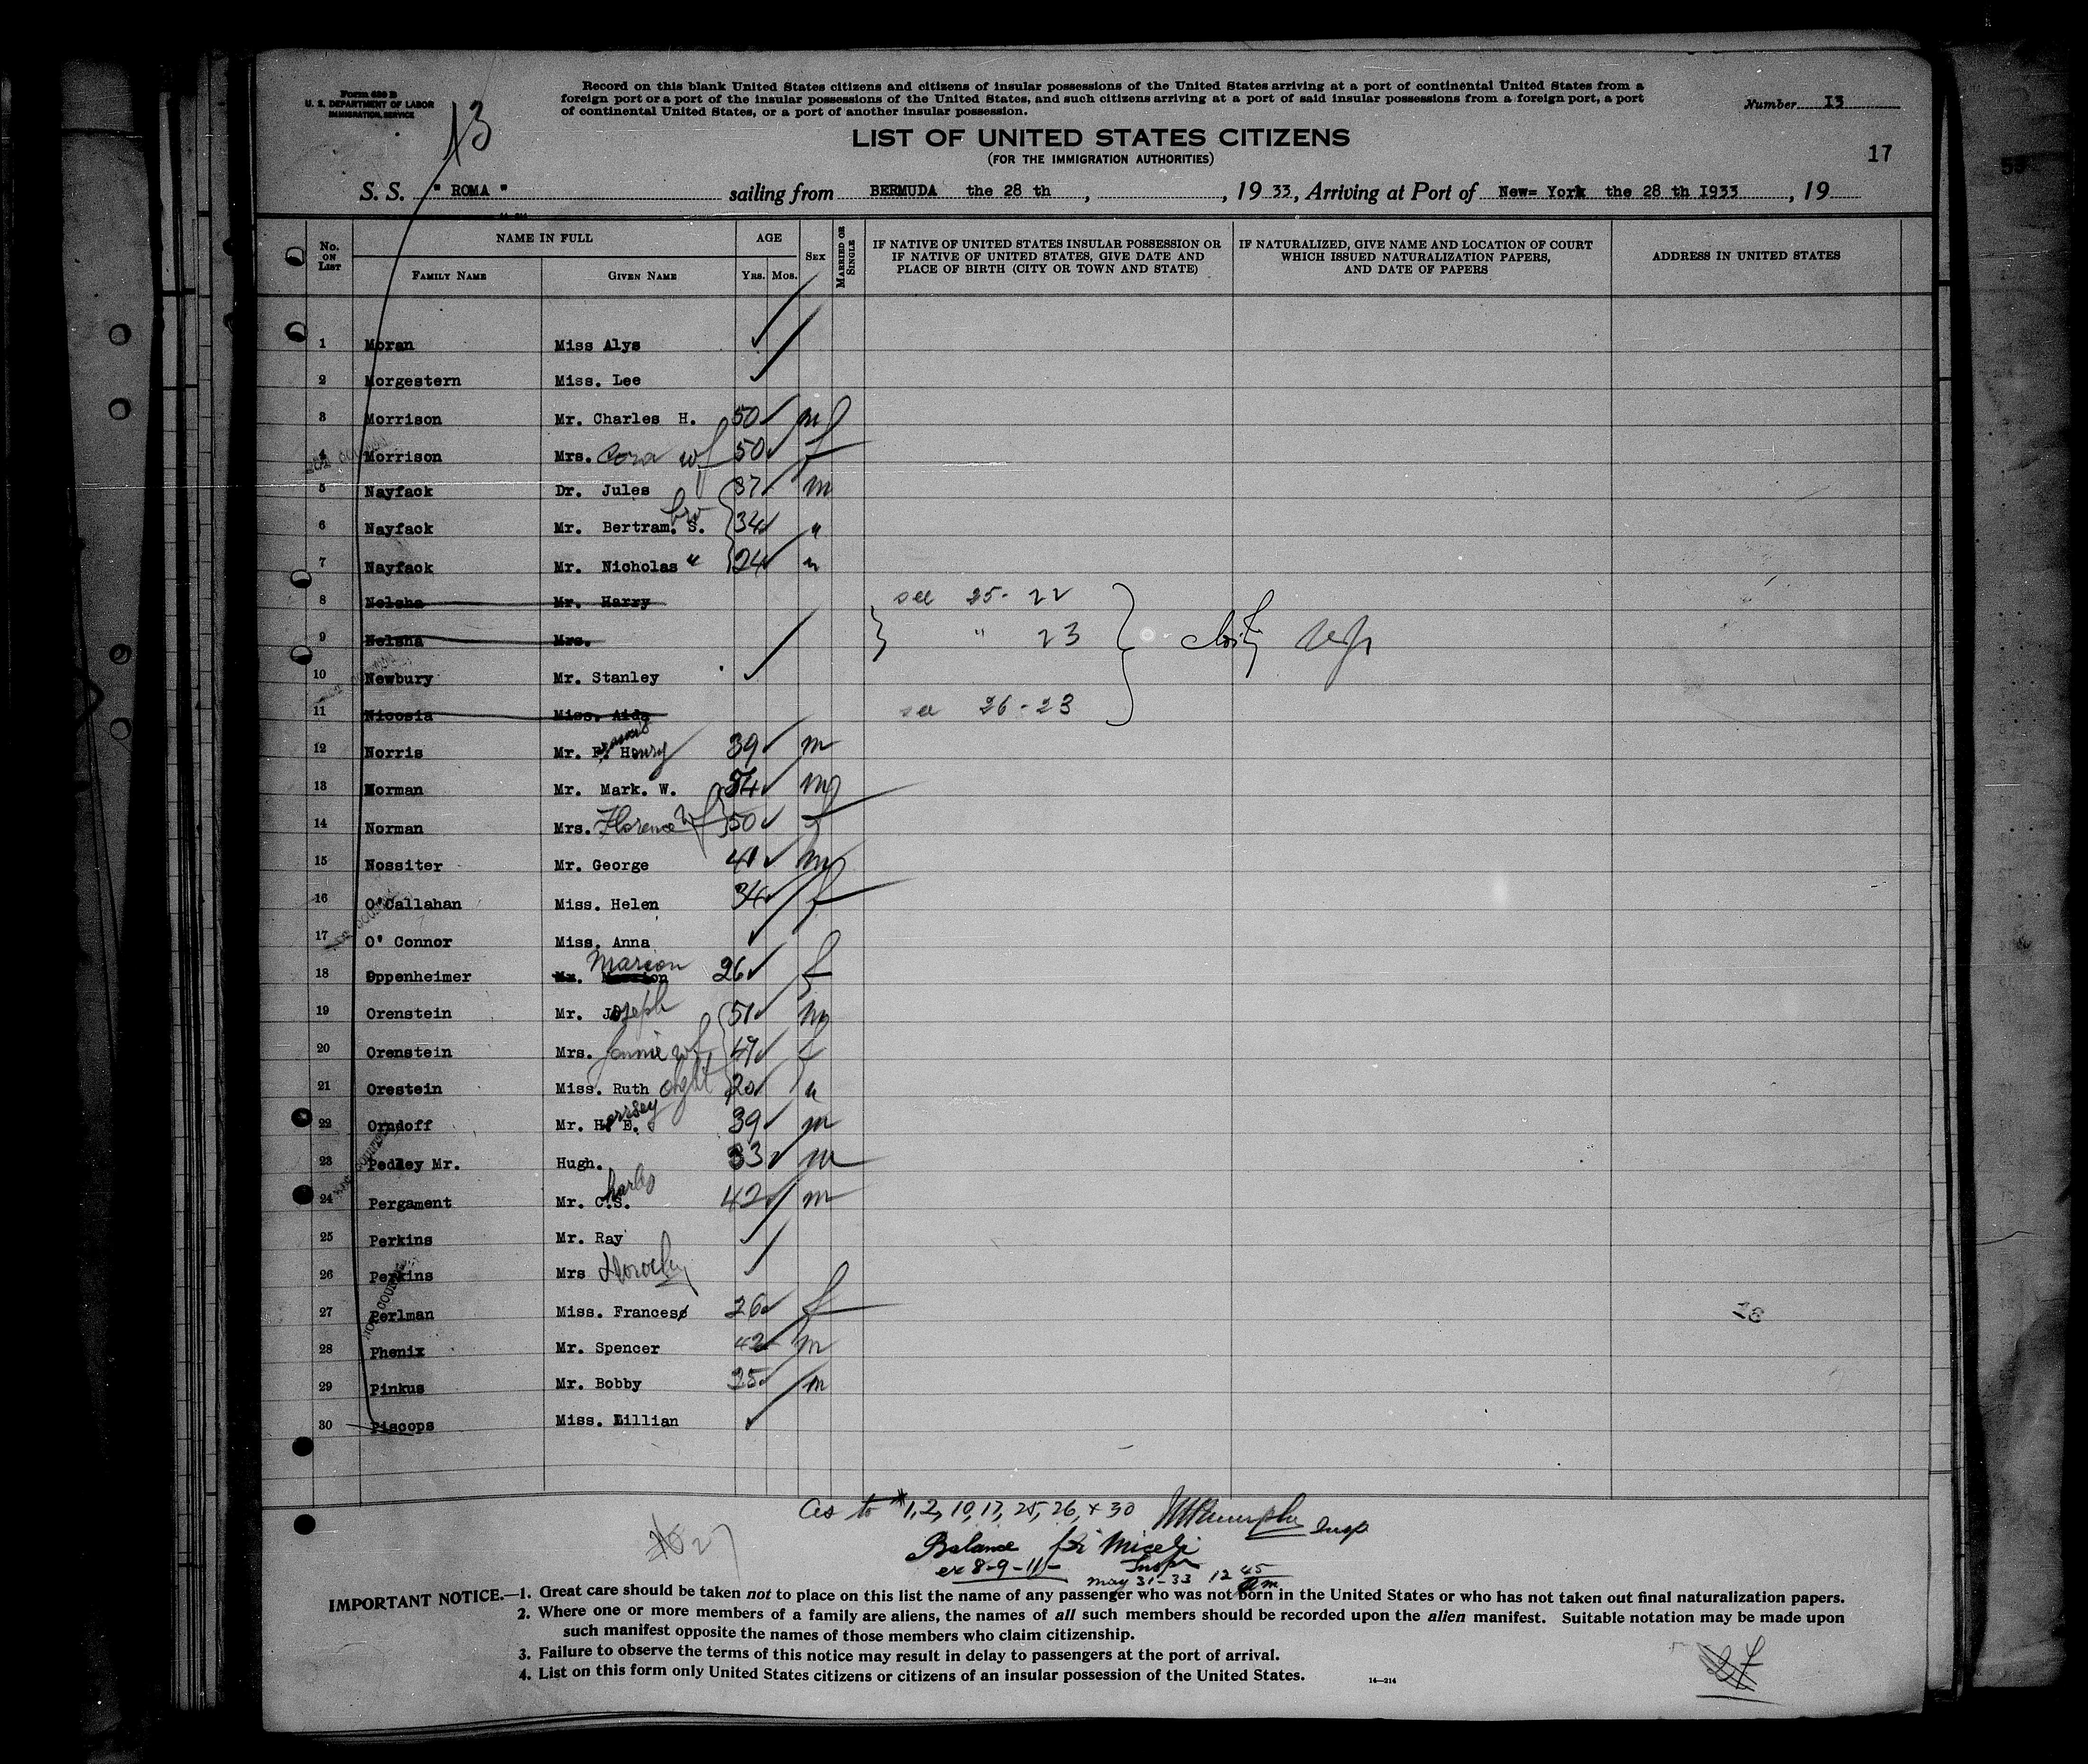 Form 630 B
U. S. DEPARTMENT OF LABOR
IMMIGRATION SERVICE
13
Record on this blank United States citizens and citizens of insular possessions of the United States arriving at a port of continental United States from a
foreign port or a port of the insular possessions of the United States, and such citizens arriving at a port of said insular possessions from a foreign port, a port
of continental United States, or a port of another insular possession.
Number I3
LIST OF UNITED STATES CITIZENS
(FOR THE IMMIGRATION AUTHORITIES)
17
S. S. " ROMA " sailing from BERMUDA the 28 th , , 19 33, Arriving at Port of New= York the 28 th I933 , 19
No. ON LIST NAME IN FULL AGE SEX MARRIED OR SINGLE IF NATIVE OF UNITED STATES INSULAR POSSESSION OR IF NATIVE OF UNITED STATES, GIVE DATE AND PLACE OF BIRTH (CITY OR TOWN AND STATE) IF NATURALIZED, GIVE NAME AND LOCATION OF COURT WHICH ISSUED NATURALIZATION PAPERS, AND DATE OF PAPERS ADDRESS IN UNITED STATES
FAMILY NAME GIVEN NAME YRS. MOS.
1 Moran Miss Alys ✓
2 Morgestern Miss. Lee ✓
3 Morrison Mr. Charles H. 50 ✓ m
4 Morrison Mrs. Cora wf 50 ✓ f
5 Nayfack Dr. Jules 37 ✓ m
6 Nayfack Mr. Bertram. S. bro 34 ✓ "
7 Nayfack Mr. Nicholas " 24 ✓ "
8 Nelsha Mr. Harry see 25-22
9 Nelsha Mrs. " 23
10 Newbury Mr. Stanley ✓
11 Nicosia Miss. Aida see 26-23
12 Norris Mr. Francis Henry 39 ✓ m
13 Norman Mr. Mark. W. 54 ✓ m
14 Norman Mrs. Florence wf 50 ✓ f
15 Nossiter Mr. George 41 ✓ m
16 O'Callahan Miss. Helen 34 ✓ f
17 O' Connor Miss. Anna ✓
18 Oppenheimer Marion 26 ✓ f
19 Orenstein Mr. Joseph 51 ✓ m
20 Orenstein Mrs. Fannie wf 47 ✓ f
21 Orestein Miss. Ruth dght 20 ✓ "
22 Orndoff Mr. H. E. 39 ✓ m
23 Pedley Mr. Hugh. 33 ✓ m
24 Pergament Mr. C.S. harles 42 ✓ m
25 Perkins Mr. Ray ✓
26 Perkins Mrs Dorothy ✓
27 Perlman Miss. Frances 26 ✓ f
28 Phenix Mr. Spencer 42 ✓ m
29 Pinkus Mr. Bobby 25 ✓ m
30 Piscops Miss. Lillian ✓
As to #1, 2, 10, 17, 25, 26, + 30 Insp
Balance for Miceli
ex 8-9-11- Inspr
May 31-33 12 45 am
27
IMPORTANT NOTICE.—1. Great care should be taken not to place on this list the name of any passenger who was not born in the United States or who has not taken out final naturalization papers.
2. Where one or more members of a family are aliens, the names of all such members should be recorded upon the alien manifest. Suitable notation may be made upon
such manifest opposite the names of those members who claim citizenship.
3. Failure to observe the terms of this notice may result in delay to passengers at the port of arrival.
4. List on this form only United States citizens or citizens of an insular possession of the United States.
14—214